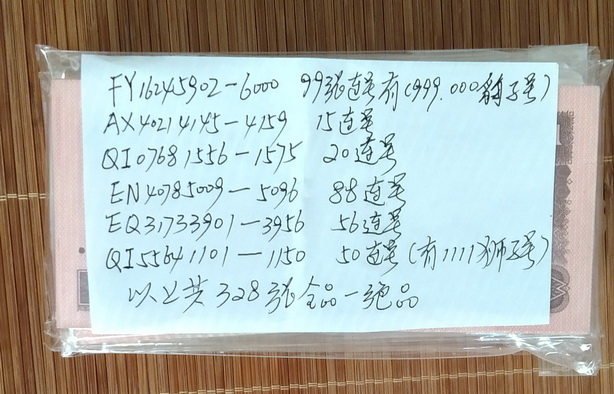 FY16245902-6000 99张连号有(999.000豹子号)
AX40214145-4159 15连号
QI07681556-1575 20连号
EN40785009-5096 88连号
EQ31733901-3956 56连号
QI55641101-1150 50连号(有1111狮子号)
以上共328张全品一绝品